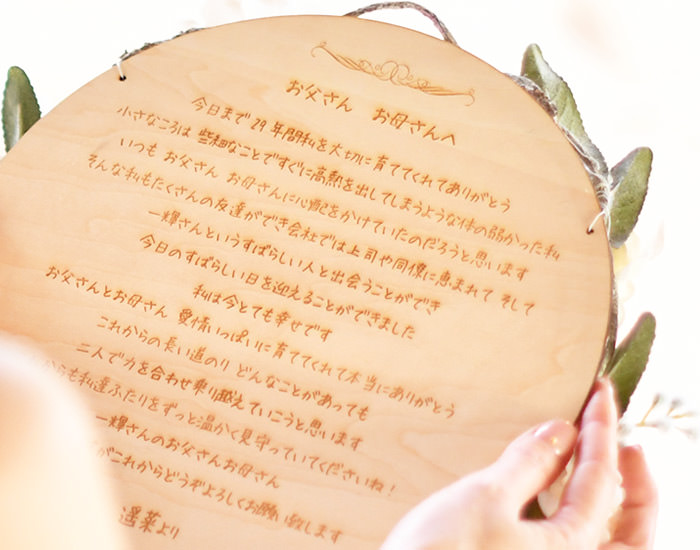 お父さん お母さんへ
今日まで29年間私を大切に育ててくれてありがとう
小さなころは 些細なことですぐに高熱を出してしまうような体の弱かった私
いつも お父さん お母さんに心配をかけていたのだろうと思います
そんな私もたくさんの友達ができ会社では上司や同僚に恵まれて そして
一輝さんというすばらしい人と出会うことができ
今日のすばらしい日を迎えることができました
私は今とても幸せです
お父さんとお母さん 愛情いっぱいに育ててくれて本当にありがとう
これからの長い道のり どんなことがあっても
二人で力を合わせ乗り越えていこうと思います
からも私達ふたりをずっと温かく見守っていてくださいね!
一輝さんのお父さんお母さん
がこれからどうぞよろしくお願い致します
遥菜より